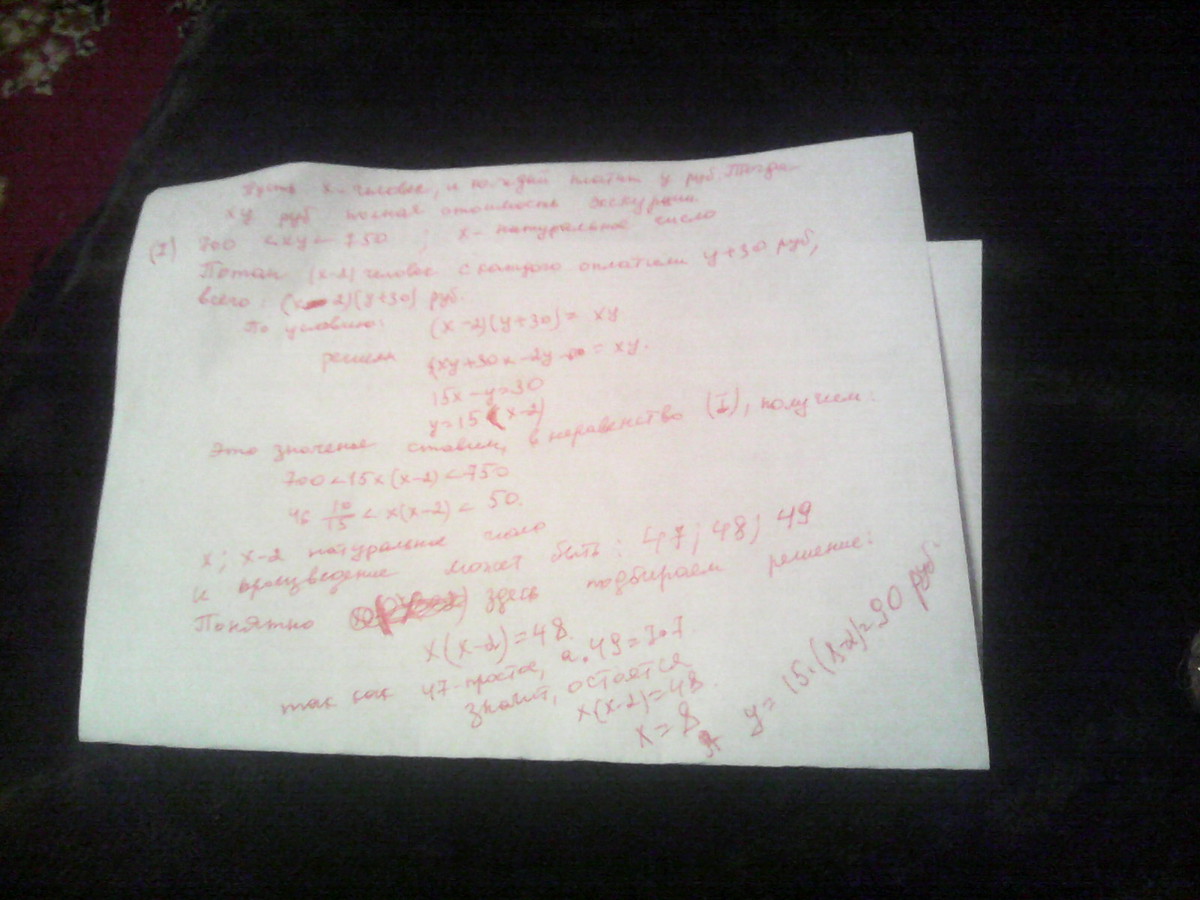 Пусть x - человек, и каждый платит y руб. Тогда
xy руб полная стоимость экскурсии.
(I) 700 < xy < 750 ; x - натуральное число
Потом (x-2) человек с каждого оплатили y+30 руб,
всего: (x-2)(y+30) руб.
По условию: (x-2)(y+30) = xy
решаем xy+30x-2y-60 = xy.
15x-y=30
y=15(x-2)
Это значение ставим, в неравенство (I), получаем:
700<15x(x-2)<750
46 10/15 < x(x-2) < 50.
x; x-2 натуральное число
и произведение может быть: 47; 48; 49
Понятно здесь подбираем решение:
x(x-2)=48.
так как 47-простое, а 49=7·7
значит, остоятся
x(x-2)=48.
x=8
y=15·(8-2)=90 руб.